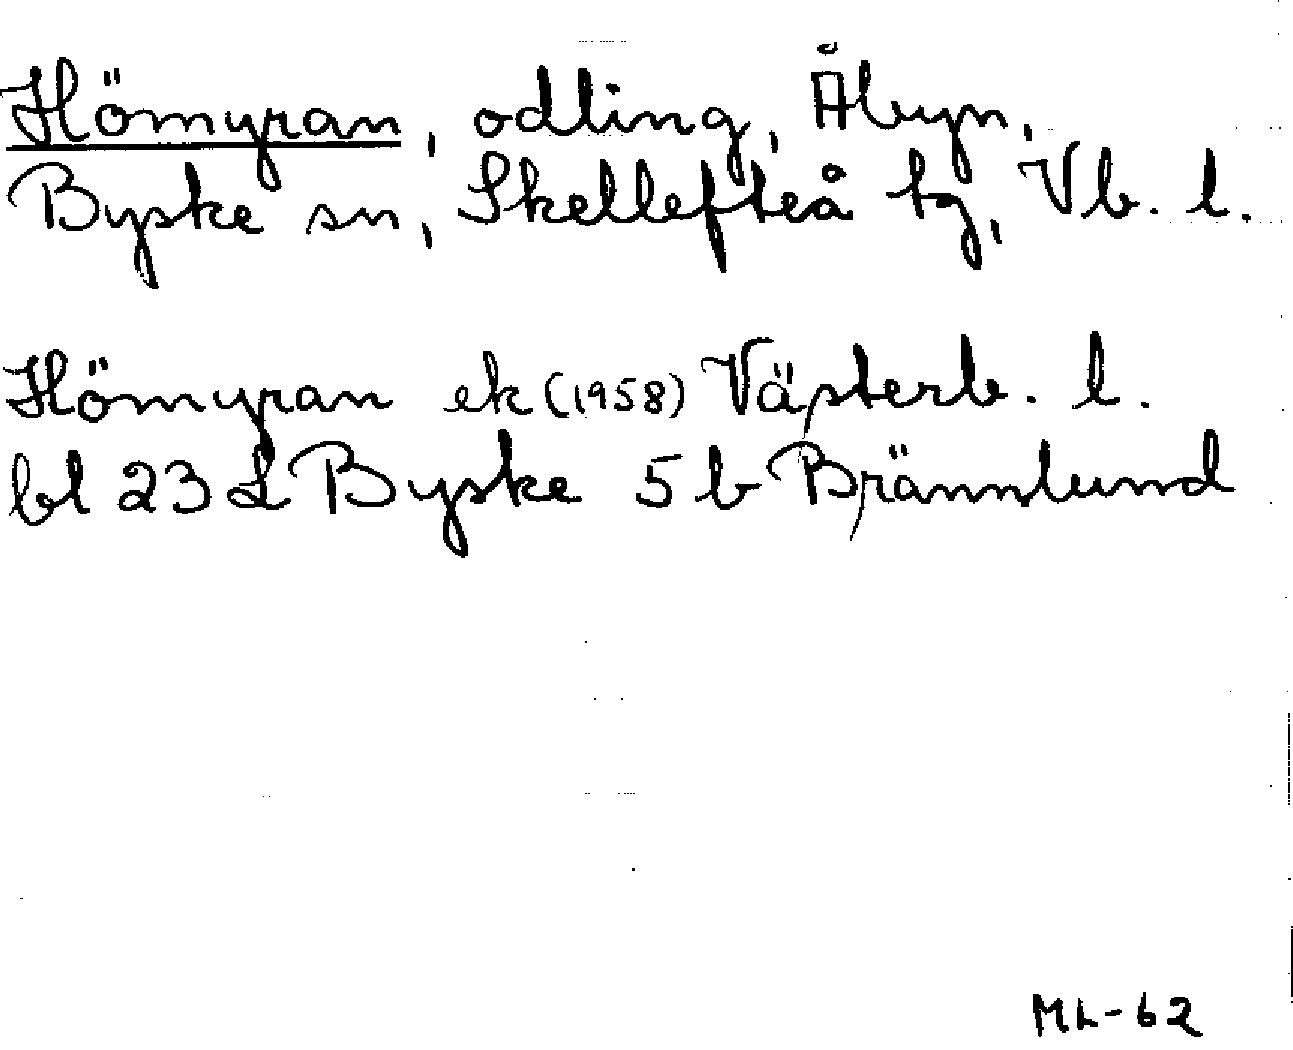 Hömyran, odling, Åbyn,
Byske sn, Skellefteå tg, Vb. l.
Hömyran ek (1958) Västerb. l.
bl 23 L Byske 5 b Brännlund
ML-62